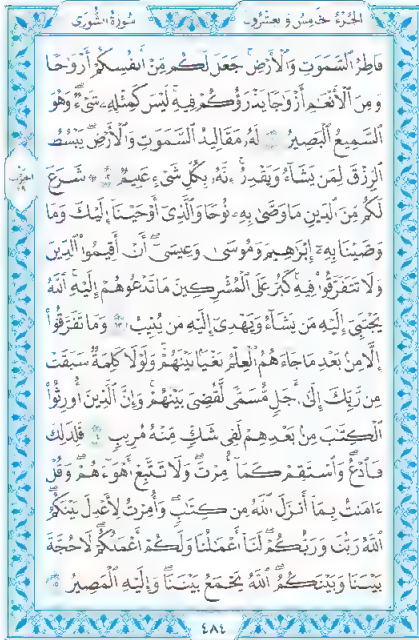 سورة الشورى الجزء الخامس والعشرون
فَاطِرُ السَّمَوَتِ وَالْأَرْضِ جَعَلَ لَكُم مِّنْ أَنفُسِكُمْ أَزْوَجًا
وَمِنَ الْأَنْعَمِ أَزْوَجًا يَذْرَؤُكُمْ فِيهِ لَيْسَ كَمِثْلِهِ شَيْءٌ وَهُوَ
السَّمِيعُ الْبَصِيرُ ١١ لَهُ مَقَالِيدُ السَّمَوَتِ وَالْأَرْضِ يَبْسُطُ
الرِّزْقَ لِمَن يَشَاءُ وَيَقْدِرُ إِنَّهُ بِكُلِّ شَيْءٍ عَلِيمٌ ١٢ شَرَعَ
لَكُم مِّنَ الدِّينِ مَا وَصَّى بِهِ نُوحًا وَالَّذِي أَوْحَيْنَا إِلَيْكَ وَمَا
وَصَّيْنَا بِهِ إِبْرَهِيمَ وَمُوسَى وَعِيسَى أَنْ أَقِيمُوا الدِّينَ
وَلَا تَتَفَرَّقُوا فِيهِ كَبُرَ عَلَى الْمُشْرِكِينَ مَا تَدْعُوهُمْ إِلَيْهِ اللَّهُ
يَجْتَبِي إِلَيْهِ مَن يَشَاءُ وَيَهْدِي إِلَيْهِ مَن يُنِيبُ ١٣ وَمَا تَفَرَّقُوا
إِلَّا مِن بَعْدِ مَا جَاءَهُمُ الْعِلْمُ بَغْيًا بَيْنَهُمْ وَلَوْلَا كَلِمَةٌ سَبَقَتْ
مِن رَّبِّكَ إِلَى أَجَلٍ مُّسَمًّى لَّقُضِيَ بَيْنَهُمْ وَإِنَّ الَّذِينَ أُورِثُوا
الْكِتَبَ مِن بَعْدِهِمْ لَفِي شَكٍّ مِّنْهُ مُرِيبٍ ١٤ فَلِذَلِكَ
فَادْعُ وَاسْتَقِمْ كَمَا أُمِرْتَ وَلَا تَتَّبِعْ أَهْوَاءَهُمْ وَقُلْ
ءَامَنتُ بِمَا أَنزَلَ اللَّهُ مِن كِتَبٍ وَأُمِرْتُ لِأَعْدِلَ بَيْنَكُمُ
اللَّهُ رَبُّنَا وَرَبُّكُمْ لَنَا أَعْمَلُنَا وَلَكُمْ أَعْمَلُكُمْ لَا حُجَّةَ
بَيْنَنَا وَبَيْنَكُمُ اللَّهُ يَجْمَعُ بَيْنَنَا وَإِلَيْهِ الْمَصِيرُ ١٥
٤٨٤